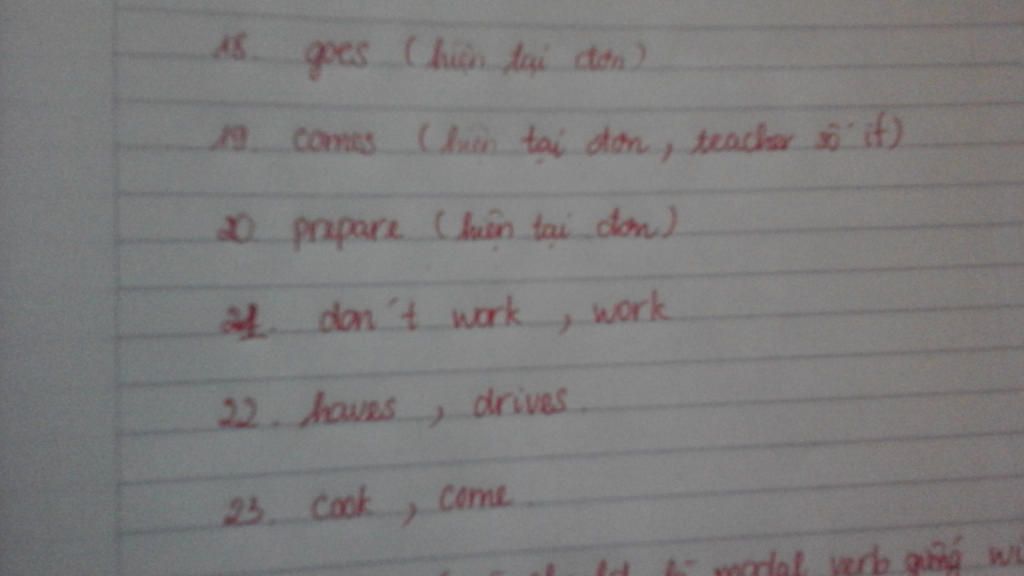 18. goes (hiện tại đơn)
19. comes (hiện tại đơn, teacher số ít)
20 prepare (hiện tại đơn)
21. don't work, work
22. haves, drives.
23. cook, come
modal verb